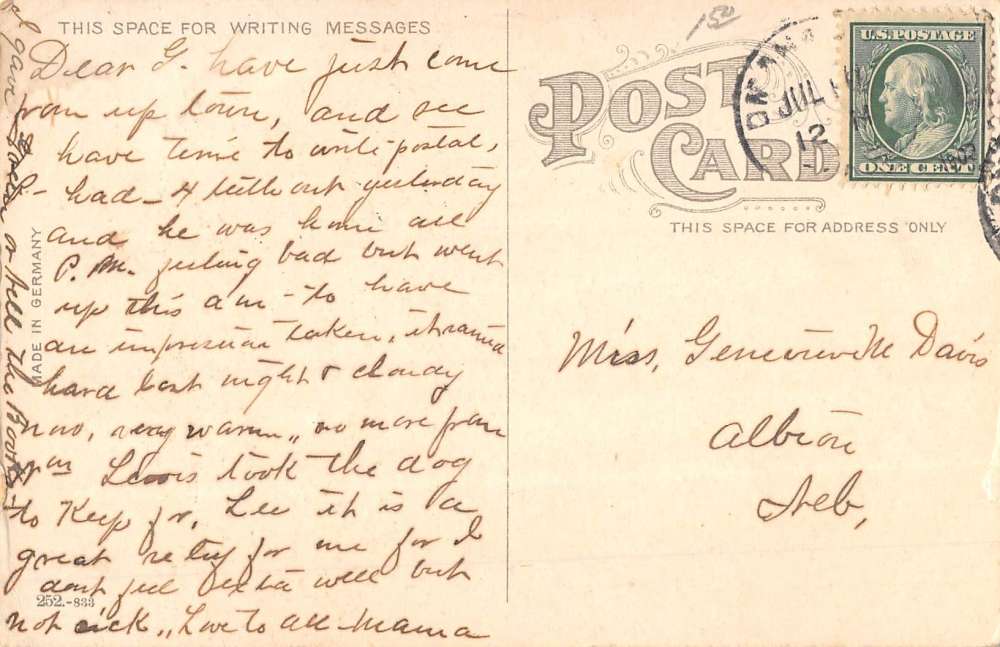 THIS SPACE FOR WRITING MESSAGES
Dear G. have just come
from up town, and see
have time to write postal,
P- had - 4 teeth out yesterday
and he was home all
P.M. feeling bad but went
up this am - to have
an impression taken, it rained
hard last night & cloudy
now, very warm,, no more from
Lewis took the dog
to Keep for Lee it is a
great relief for me for I
dont feel extra well but
not sick ,, Love to all Mama
I gave
or tell the Books
MADE IN GERMANY
252.-833
150
POST
CARD
JUL
12
1909
U.S. POSTAGE
ONE CENT
THIS SPACE FOR ADDRESS ONLY
Miss, Genevieve M Davis
Albion
Neb,